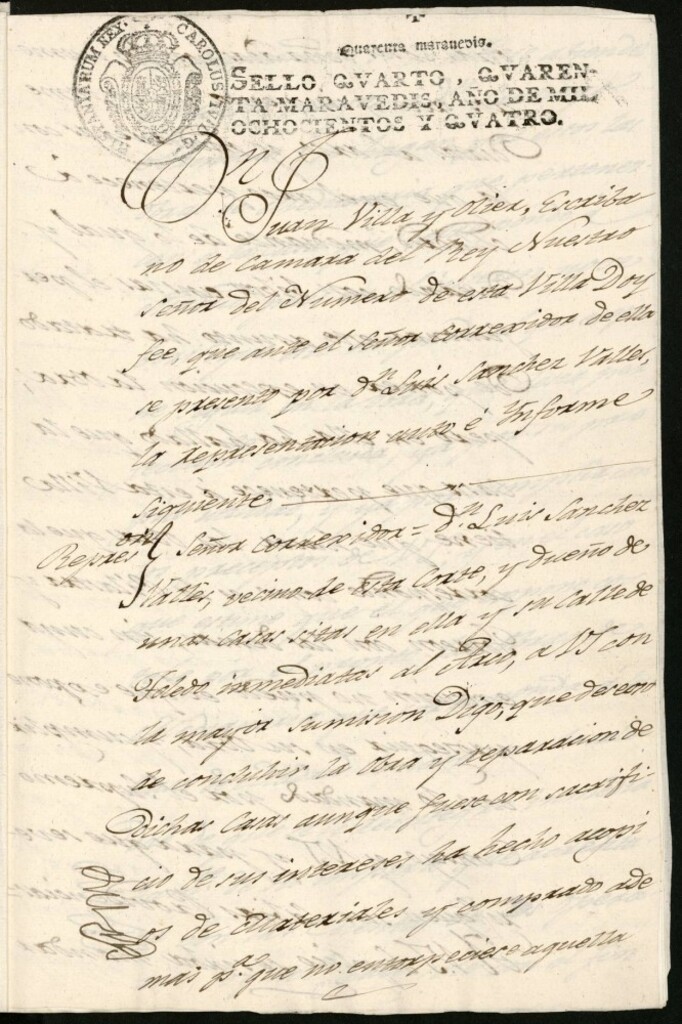 HISPANIARUM REX. CAROLUS IV D G
Quarenta maravedis.
SELLO QVARTO, QVAREN-
TA MARAVEDIS, AÑO DE MIL
OCHOCIENTOS Y QVATRO.
Dn Juan Villa y Olier, Escriba
no de Camara del Rey Nuestro
Señor del Numero de esta Villa Doy
fee, que ante el Señor Correxidor de ella
se presento por Dn. Luis Sanchez Valles,
la representacion auto é Ynforme
siguiente
Represon Señor Correxidor = Dn Luis Sanchez
Valles, vecino de esta Corte, y dueño de
unas casas sitas en ella y su Calle de
Toledo inmediatas al Arco, a VS con
la mayor sumision Digo, que deseoso
de concluhir la obra y reparacion de
dichas Casas aunque fuese con sacrifi-
cio de sus intereses ha hecho acopi
os de Materiales y comprado ade
mas pa. que no entorpeciese aquella